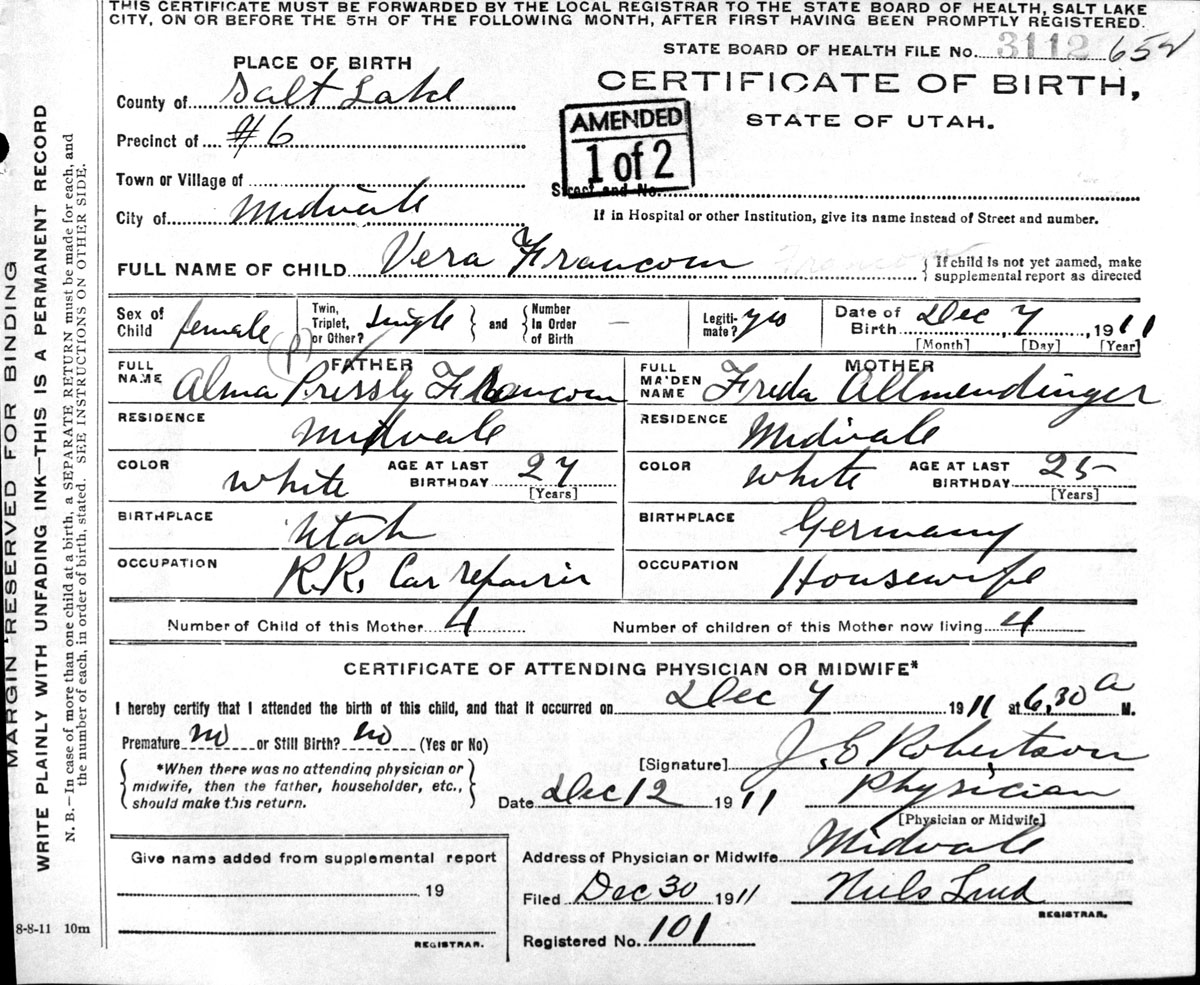 THIS CERTIFICATE MUST BE FORWARDED BY THE LOCAL REGISTRAR TO THE STATE BOARD OF HEALTH, SALT LAKE
CITY, ON OR BEFORE THE 5TH OF THE FOLLOWING MONTH, AFTER FIRST HAVING BEEN PROMPTLY REGISTERED.
STATE BOARD OF HEALTH FILE No. 3112 652
PLACE OF BIRTH
CERTIFICATE OF BIRTH,
STATE OF UTAH.
County of Salt Lake
AMENDED
1 of 2
Precinct of #6
Town or Village of
Street and No.
City of Midvale
If in Hospital or other Institution, give its name instead of Street and number.
FULL NAME OF CHILD Vera Francom
{ If child is not yet named, make
supplemental report as directed
Sex of Child female
Twin, Triplet, or Other? Single } and { Number In Order of Birth —
Legiti-mate? yes
Date of Birth Dec 7, 1911
[Month] [Day] [Year]
FATHER
FULL NAME Alma Pressly Francom
(P)
MOTHER
FULL MAIDEN NAME Freda Allmendinger
RESIDENCE Midvale
RESIDENCE Midvale
COLOR white AGE AT LAST BIRTHDAY 27 [Years]
COLOR white AGE AT LAST BIRTHDAY 25 [Years]
BIRTHPLACE Utah
BIRTHPLACE Germany
OCCUPATION R.R. Car repairir
OCCUPATION Housewife
Number of Child of this Mother 4 Number of children of this Mother now living 4
CERTIFICATE OF ATTENDING PHYSICIAN OR MIDWIFE*
I hereby certify that I attended the birth of this child, and that it occurred on Dec 7 1911 at 6,30 a M.
Premature no or Still Birth? no (Yes or No)
{ *When there was no attending physician or
midwife, then the father, householder, etc.,
should make this return. }
[Signature] J. E. Robertson
Date Dec 12 1911 Physician
[Physician or Midwife]
Give name added from supplemental report
19
REGISTRAR.
Address of Physician or Midwife Midvale
Filed Dec 30 1911 Niels Lind
REGISTRAR.
Registered No. 101
8-8-11 10m
MARGIN RESERVED FOR BINDING
WRITE PLAINLY WITH UNFADING INK—THIS IS A PERMANENT RECORD
N. B.—In case of more than one child at a birth, a SEPARATE RETURN must be made for each, and
the number of each, in order of birth, stated. SEE INSTRUCTIONS ON OTHER SIDE.